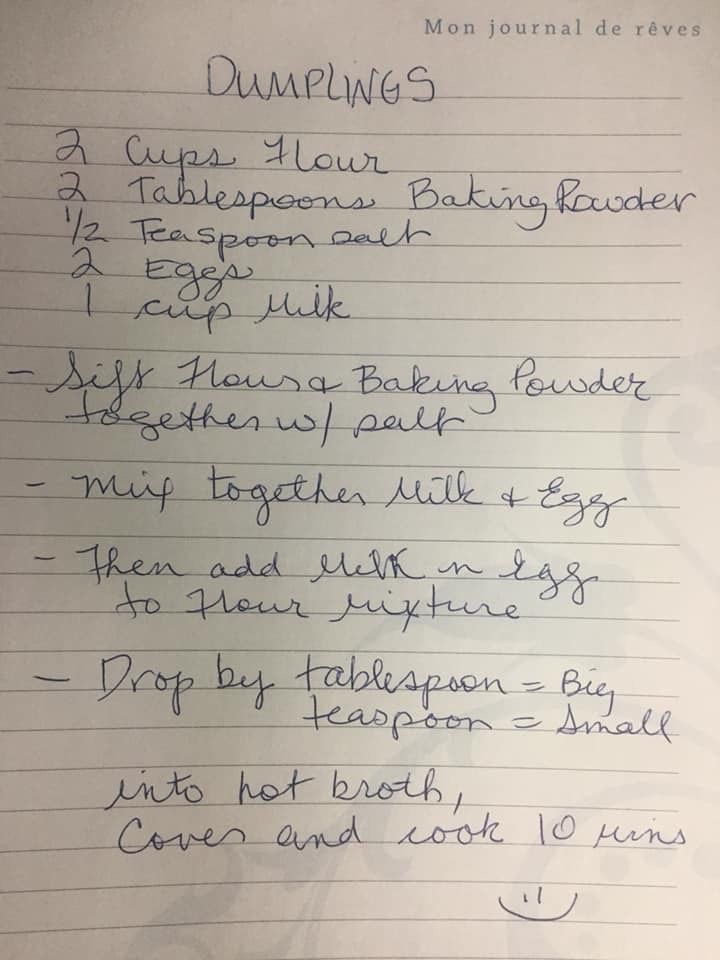 Mon journal de rêves
DUMPLINGS
2 Cups Flour
2 Tablespoons Baking Powder
1/2 Teaspoon salt
2 Eggs
1 cup Milk
- Sift Flour & Baking Powder
together w/ salt
- Mix together Milk & Egg
- Then add Milk n egg
to Flour Mixture
- Drop by tablespoon = Big
teaspoon = Small
into hot broth,
Cover and cook 10 mins